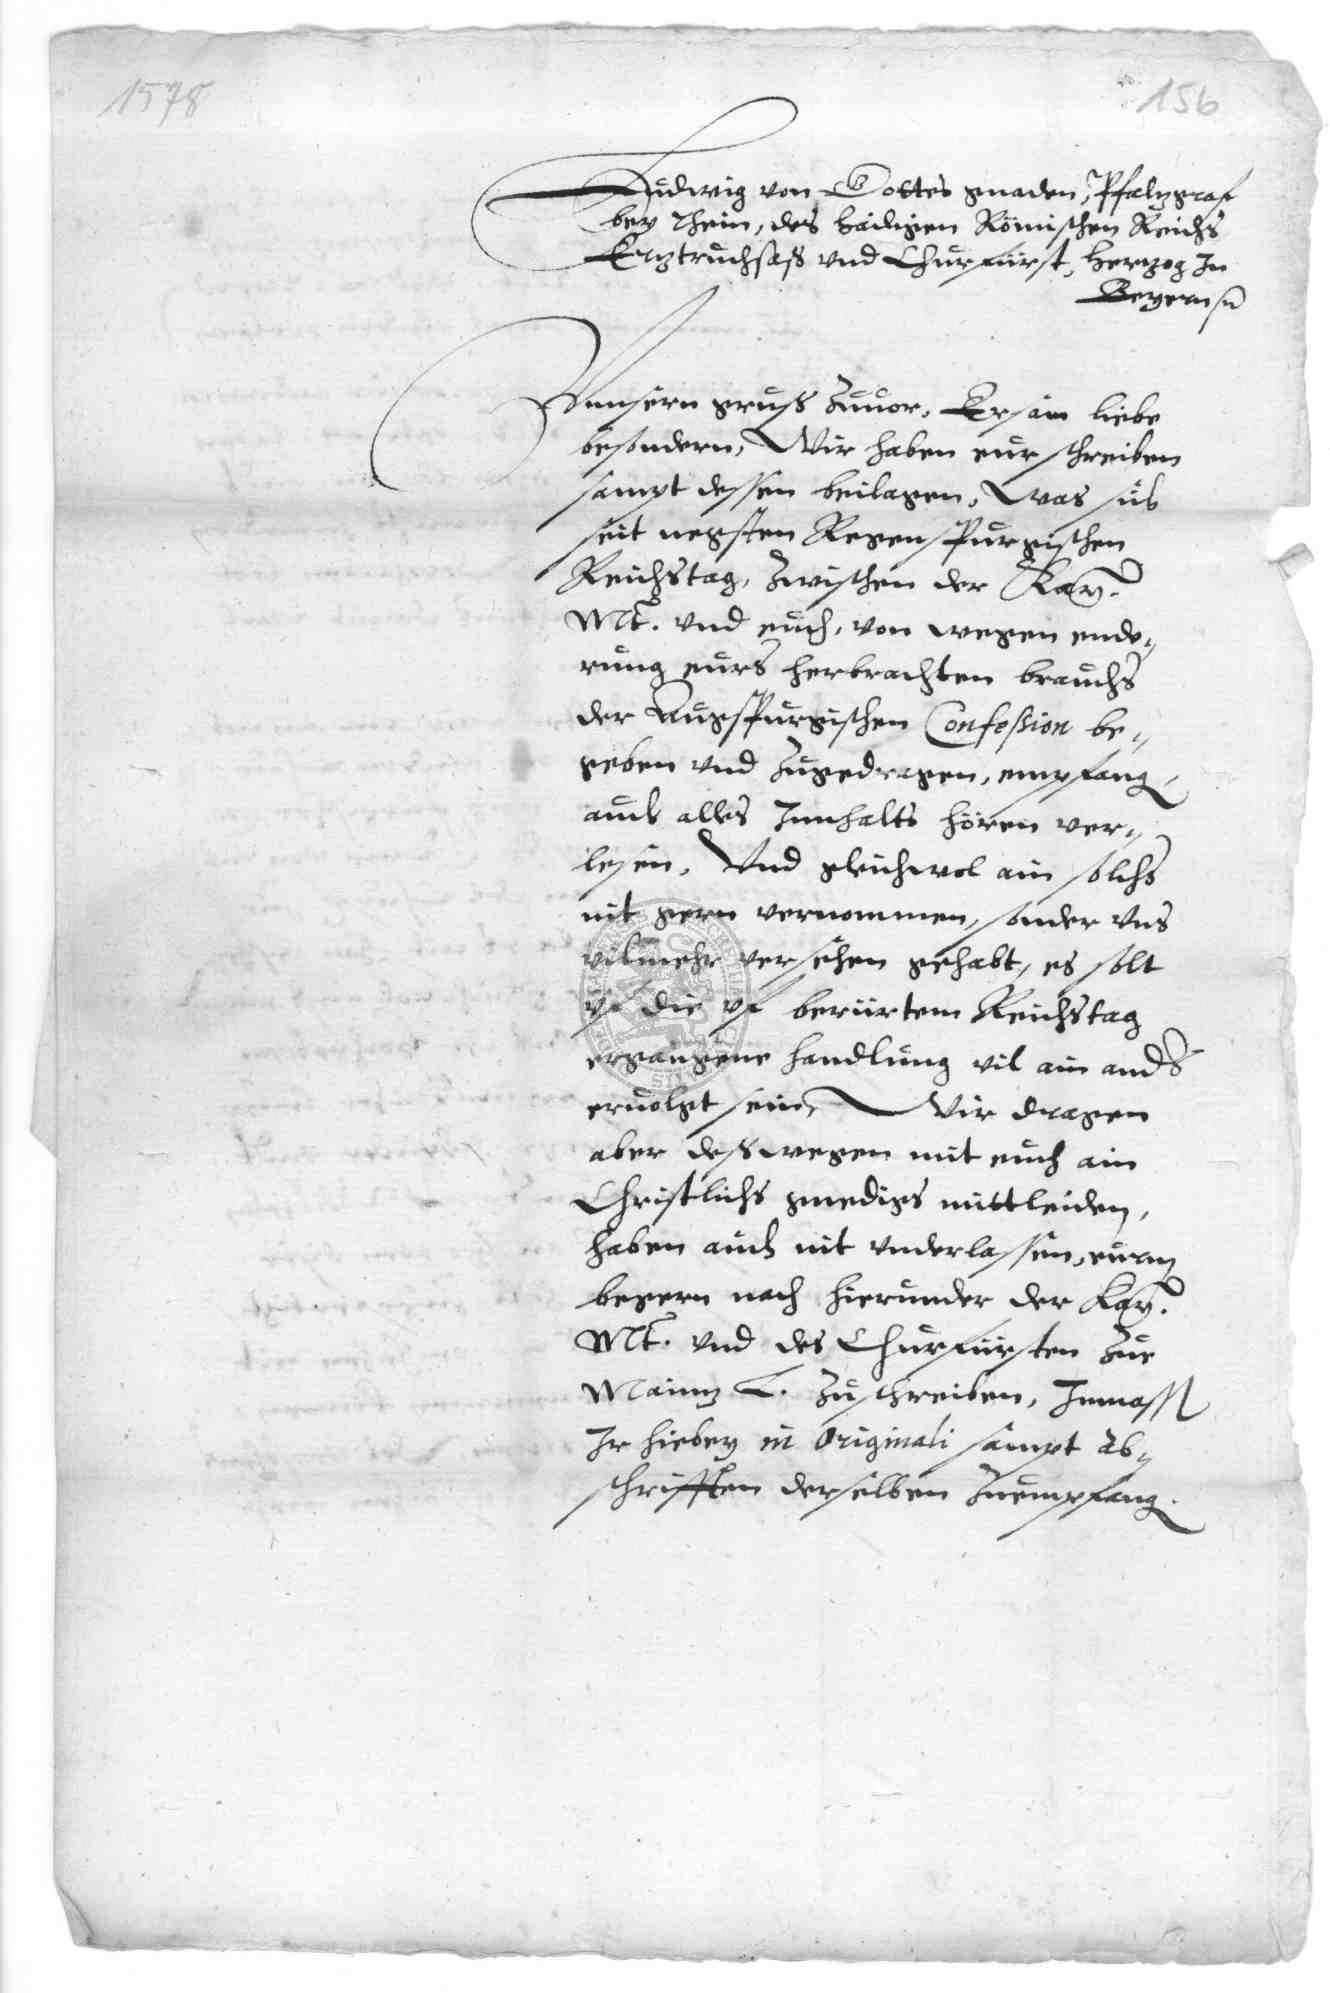 1578
156
Ludwig von Gottes gnaden, Pfaltzgraf
bey Rhein, des Hailigen Römischen Reichs
Ertztruchsäß vnd Churfürst, Hertzog In
Beyern
Vnnsern gruß Zuuor, Ersam liebe
besondern, Wir haben eur schreiben
sampt dessen beilagen, Was sich
seit negsten Regenspurgischen
Reichstag, Zwischen der Kay.
Mt. vnd euch, von wegen ende-
rung eurs herbrachten brauchs
der Augspurgischen Confession be-
geben vnd Zugedragen, empfang,
auch alles Innhalts hören ver-
lesen, Vnd gleichwol ain solchs
nit gern vernommen, sonder vns
vilmehr versehen gehabt, es solt
vf die vf berürtem Reichstag
ergangene handlung vil ain anders
eruolgt sein, Wir dragen
aber deßwegen mit euch ain
Christlichs gnedigs mittleiden,
haben auch nit vnderlassen, eurm
begern nach hierunder der Kay.
Mt. vnd des Churfürsten Zue
Maintz L. Zuschreiben, Inmassen
Ir hiebey in Originali sampt ab-
schrifften derselben Zuempfang.